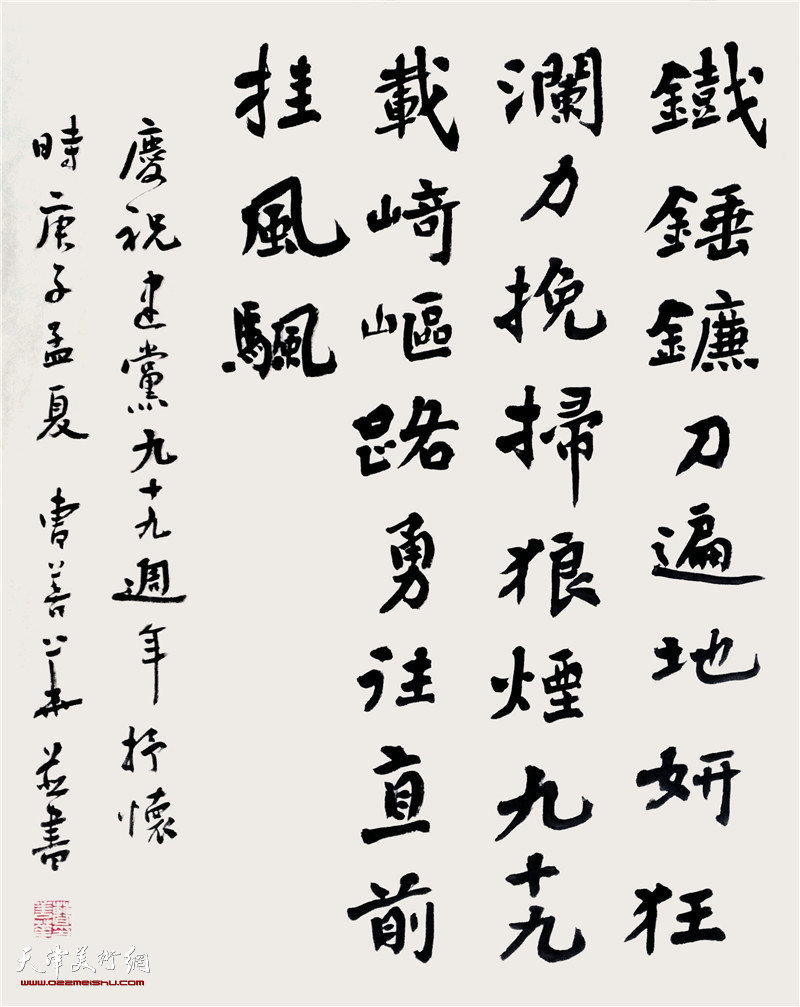 鐵錘鐮刀遍地妍狂
瀾力挽掃狼煙九十九
載崎嶇路勇往直前
挂風颿
慶祝建黨九十九週年抒懷
時庚子孟夏 曹善華並書
天津美術網
www.022meishu.com